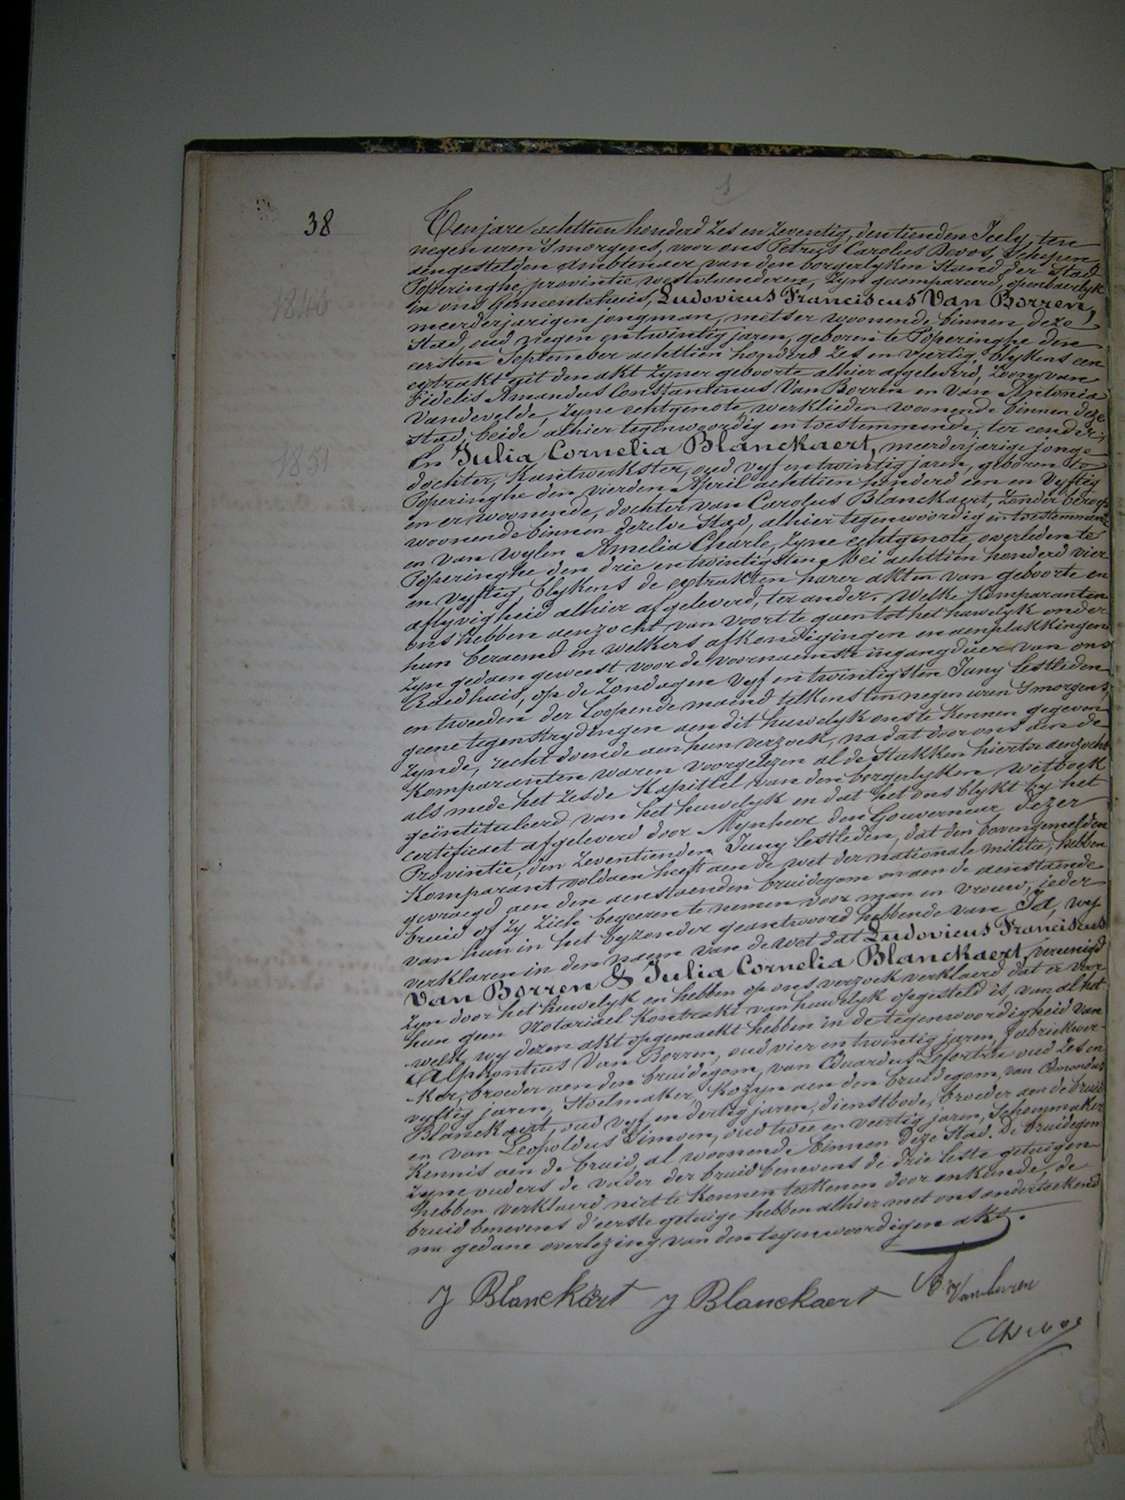 38
Ten jare achttien honderd zes en zeventig, den tienden July, ten
negen uren 's morgens, voor ons Petrus Carolus Devos, Schepen,
aengestelden Ambtenaer van den borgerlyken Stand der Stad
Poperinghe, provintie westvlaenderen, zyn gecompareerd, openbaerlyk
in ons Gemeentehuis, Ludovicus Franciscus Van Borren,
meerderjarigen jongman, metser, woonende binnen deze
Stad, oud negen en twintig jaren, geboren te Poperinghe den
eersten September achttien honderd zes en veertig, blykens een
extrakt uit den akt zyner geboorte alhier afgeleverd, zoon van
Fidelis Amandus Constantinus Van Borren en van Antonia
Vandevelde, zyne echtgenote, werklieden woonende binnen deze
Stad, beide alhier tegenwoordig en toestemmende, ter eender;
En Julia Cornelia Blanckaert, meerderjarige jonge
dochter, Kantwerkster, oud vyf en twintig jaren, geboren te
Poperinghe den vierden April achttien honderd een en vyftig
en er woonende, dochter van Carolus Blanckaert, zonder beroep
woonende binnen dezelve Stad, alhier tegenwoordig en toestemmende
en van wylen Amelia Charle, zyne echtgenote, overleden te
Poperinghe den drie en twintigsten Mei achttien honderd vier
en vyftig, blykens de extrakten harer akten van geboorte en
aflyvigheid alhier afgeleverd, ter ander. Welke Komparanten
ons hebben aenzocht van voort te gaen tot het huwelyk onder
hun beraemd en welkers afkondigingen en aenplakkingen
zyn gedaen geweest voor de voornaemste ingangdeur van ons
Raedhuis, op de Zondagen vyf en twintigsten Juny lestleden
en tweeden der loopende maend telkens ten negen uren 's morgens
geene tegenstrydingen aen dit huwelyk ons te kennen gegeven
zynde, recht doende aen hun verzoek, na dat door ons aen de
Komparanten waren voorgelezen al de Stukken hiertoe aenzocht
als mede het zesde Kapittel van den borgerlyken Wetboek
geïntituleerd van het huwelyk en dat het ons blykt by het
certificaet afgeleverd door Mynheer den Gouverneur dezer
Provintie, den zeventienden Juny lestleden, dat den bovengemelden
Komparant voldaen heeft aen de wet der nationale militie, hebben
gevraegd aen den aenstaenden bruidegom en aen de aenstaende
bruid of zy zich begeeren te nemen voor man en vrouw; ieder
van hun in het byzonder geantwoord hebbende van Ja, wy
verklaren in den naem van de wet dat Ludovicus Franciscus
Van Borren & Julia Cornelia Blanckaert, vereenigd
zyn door het huwelyk en hebben op ons verzoek verklaerd dat er voor
hun geen Notariael Kontrakt van huwelyk opgesteld is, van al het
welk wy dezen akt opgemaekt hebben in de tegenwoordigheid van
Alphontius Van Borren, oud vier en twintig jaren, fabriekwer-
ker, broeder aen den bruidegom, van Eduardus oud zes en
vyftig jaren, Stoelmaker, Kozyn aen den bruidegom, van Edmondus
Blanckaert, oud vyf en dertig jaren, dienstbode, broeder aen de bruid
en van Leopoldus Simoen, oud twee en veertig jaren, Schoenmaker
Kennis aen de bruid, al woonende binnen deze Stad. De bruidegom
zyne ouders de vader der bruid benevens de drie leste getuigen
hebben verklaerd niet te konnen teekenen door onkunde, de
bruid benevens d'eerste getuige hebben alhier met ons onderteekend
na gedane overlezing van den tegenwoordigen akt.
J Blanckaert J Blanckaert A Vanborren
C Devos